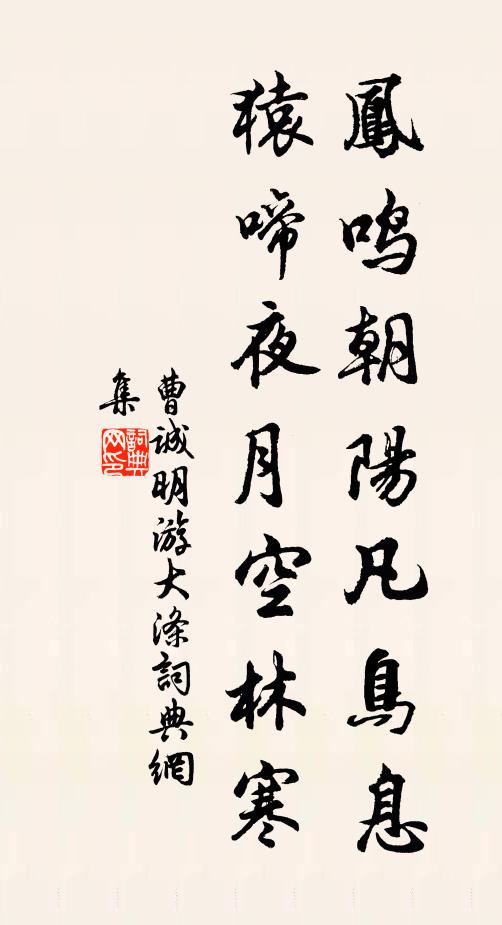 鳳鳴朝陽凡鳥息
猿啼夜月空林寒
曹誠明游大滌詞典網
集
詞典
网印